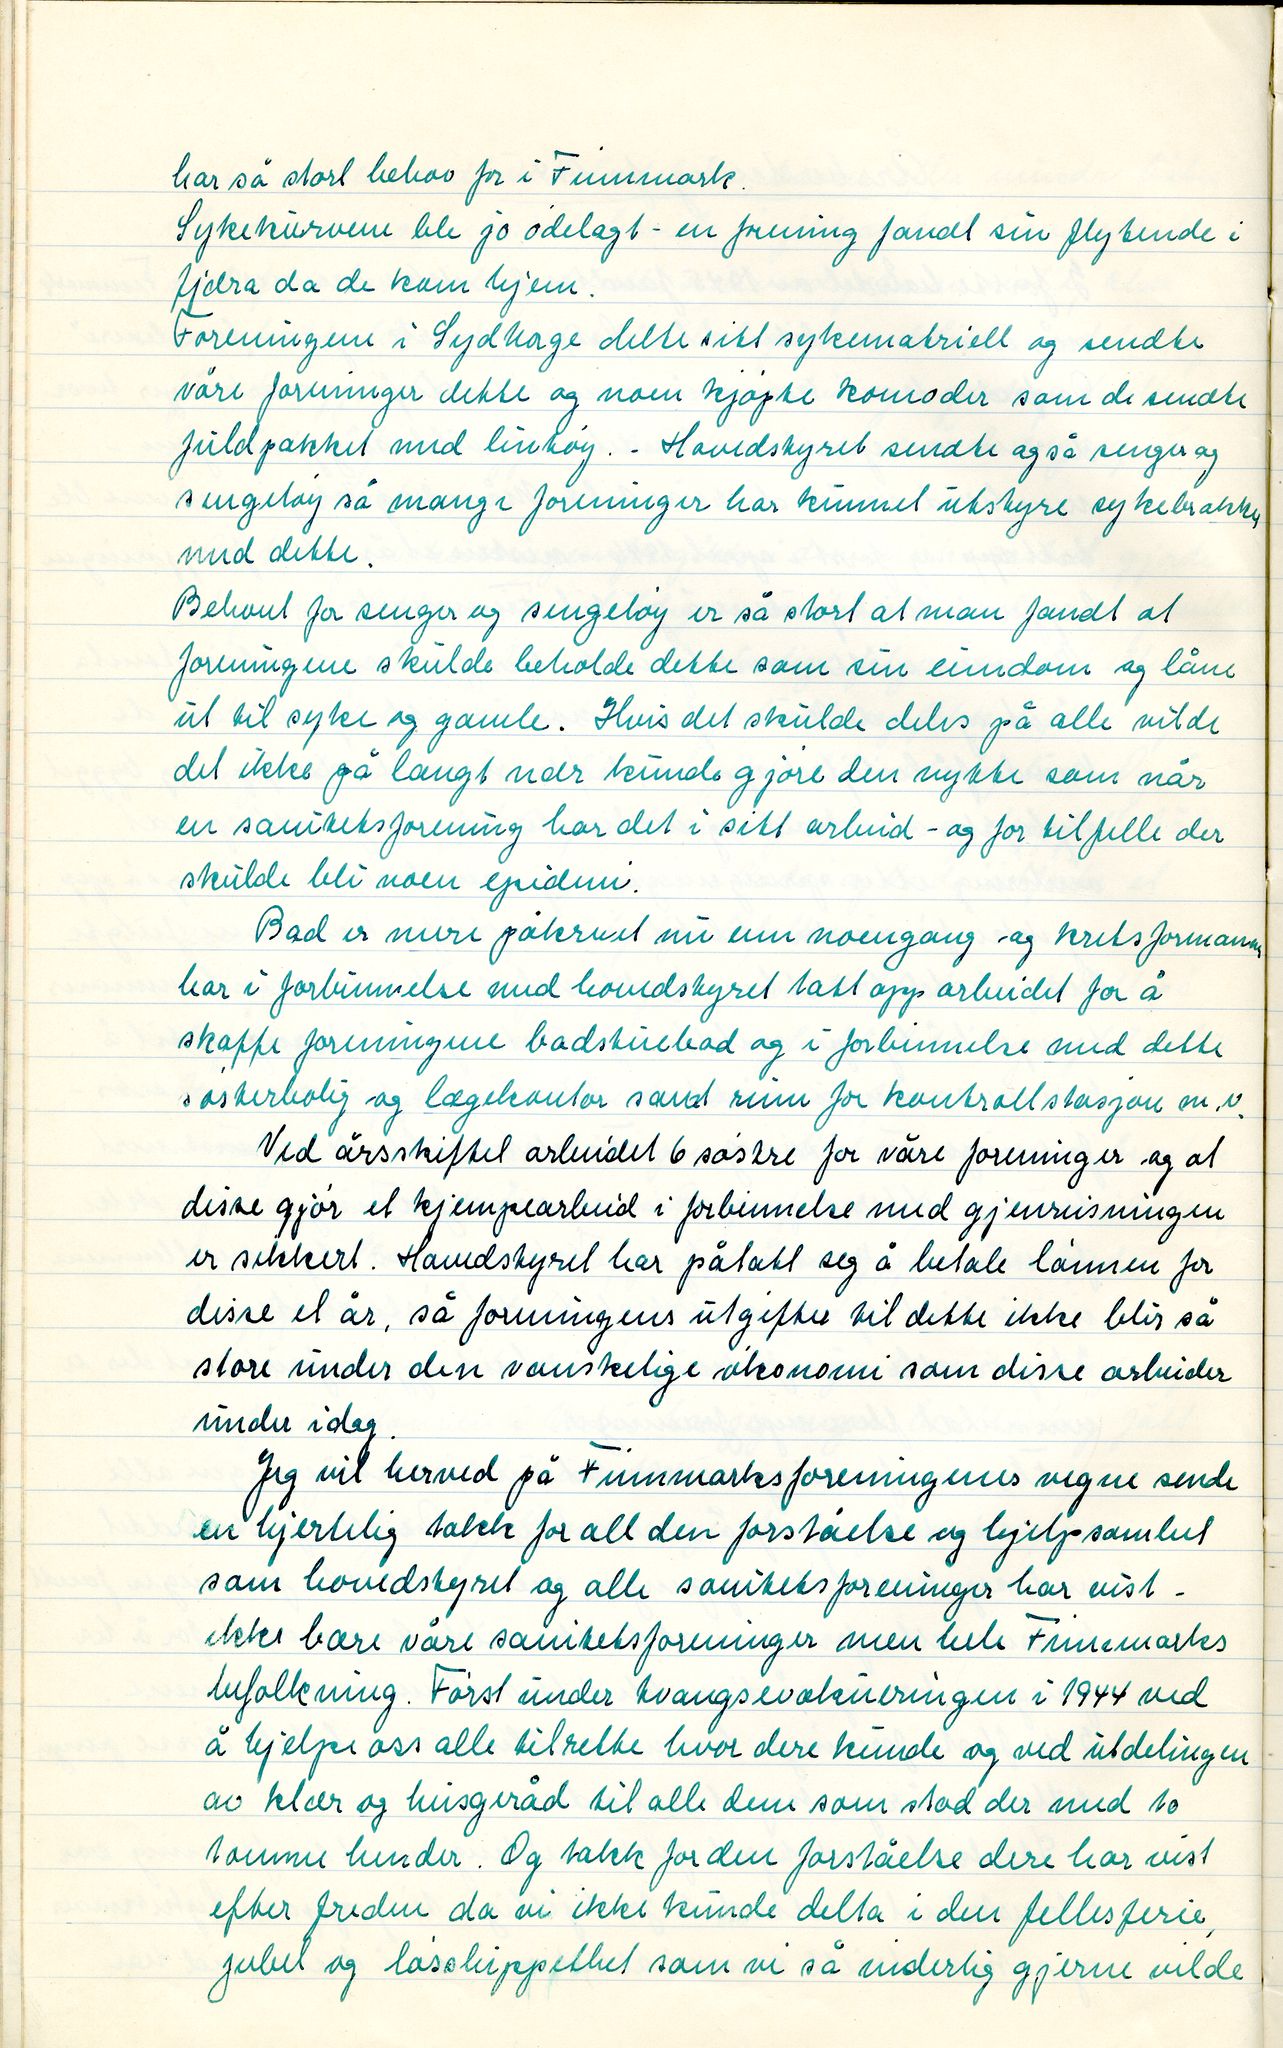 har så stort behov for i Finnmark.
Sykekurvene ble jo ödelagt - en forening fandt sin flytende i
fjæra da de kom hjem.
Foreningene i SydNorge delte sitt sykematriell og sendte
våre foreninger dette og noen kjöpte komoder som de sendte
fuldpakket med lintöy. - Hovedstyret sendte også senger og
sengetöy så mange foreninger har kunnet utstyre sykebrakker
med dette.
Behovet for senger og sengetöy er så stort at man fandt at
foreningene skulde beholde dette som sin eindom og låne
ut til syke og gamle. Hvis det skulde deles på alle vilde
det ikke på langt nær kunde gjöre den nytte som når
en sanitetsforening har det i sitt arbeid - og for tilfelle der
skulde bli noen epidemi.
Bad er mere påkrevet nu enn noengang og kretsformannen
har i forbinnelse med hovedstyret tatt opp arbeidet for å
skaffe foreningene badstuebad og i forbinnelse med dette
sösterbolig og lægekontor samt rum for kontrollstasjon m.v.
Ved årsskiftet arbeidet 6 söstre for våre foreninger og at
disse gjör et kjempearbeid i forbinnelse med gjenreisningen
er sikkert. Hovedstyret har påtatt seg å betale lönnen for
disse et år, så foreningens utgifter til dette ikke blir så
store under den vanskelige ökonomi som disse arbeider
under idag.
Jeg vil herved på Finnmarksforeningenes vegne sende
en hjertelig takk for all den forståelse og hjelpsomhet
som hovedstyret og alle sanitetsforeninger har vist -
ikke bare våre sanitetsforeninger men hele Finnmarks
befolkning. Först under tvangsevakueringen i 1944 ved
å hjelpe oss alle tilrette hvor dere kunde og ved utdelingen
av klær og husgeråd til alle dem som stod der med to
tomme hender. Og takk for den forståelse dere har vist
efter freden da vi ikke kunde delta i den fellesferie,
jubel og lössluppethet som vi så inderlig gjerne vilde